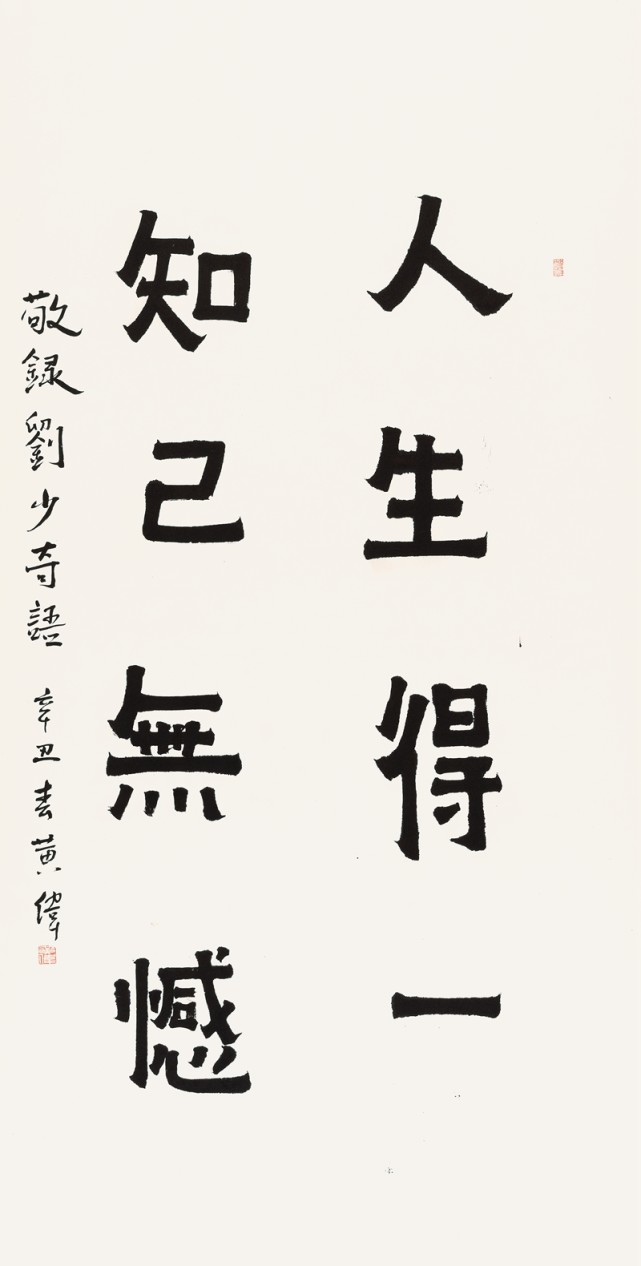 人生得一
知己無憾
敬録劉少奇語 辛丑春黄偉